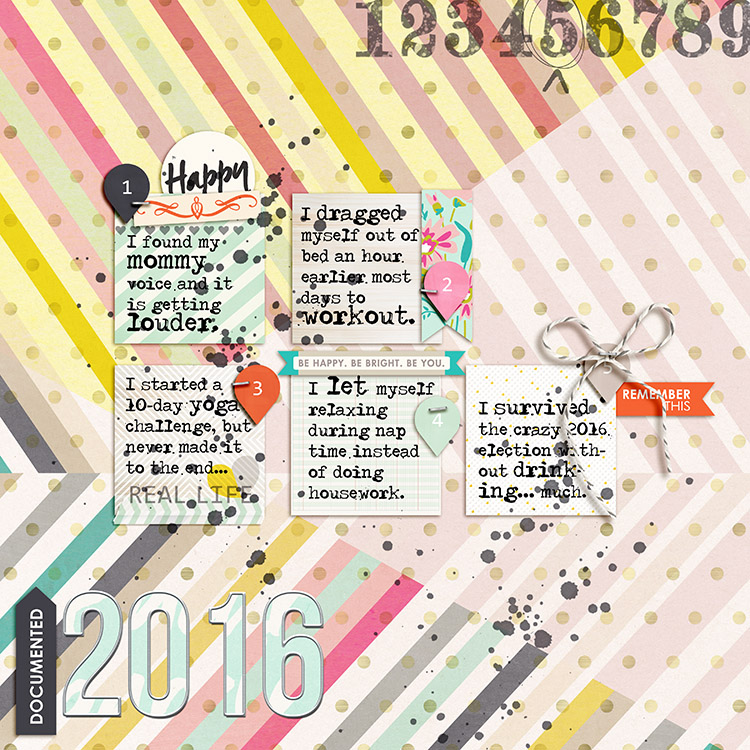 123456789
1
Happy
I found my
mommy
voice and it
is getting
louder.
I dragged
myself out of
bed an hour
earlier most
days to
workout.
2
I started a
10-day yoga
challenge, but
never made it
to the end...
REAL LIFE
3
BE HAPPY. BE BRIGHT. BE YOU.
I let myself
relaxing
during nap
time instead
of doing
housework.
4
I survived
the crazy 2016
election with-
out drink-
ing... much.
5
REMEMBER
THIS
DOCUMENTED
2016